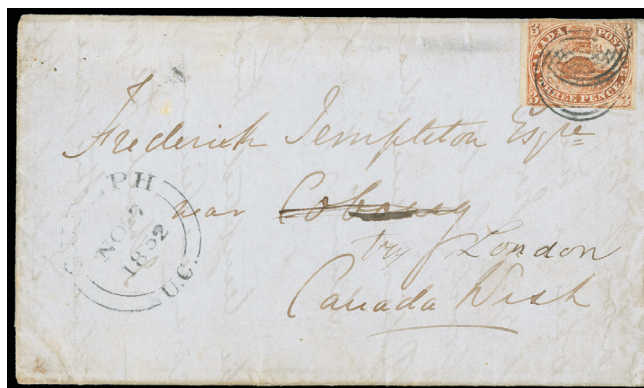 CANADA POSTAGE
THREE PENCE
3 3 3 3
Frederick Templeton Esqre
near Cobourg
try London
Canada West
GUELPH
NO 5
1852
U.C.